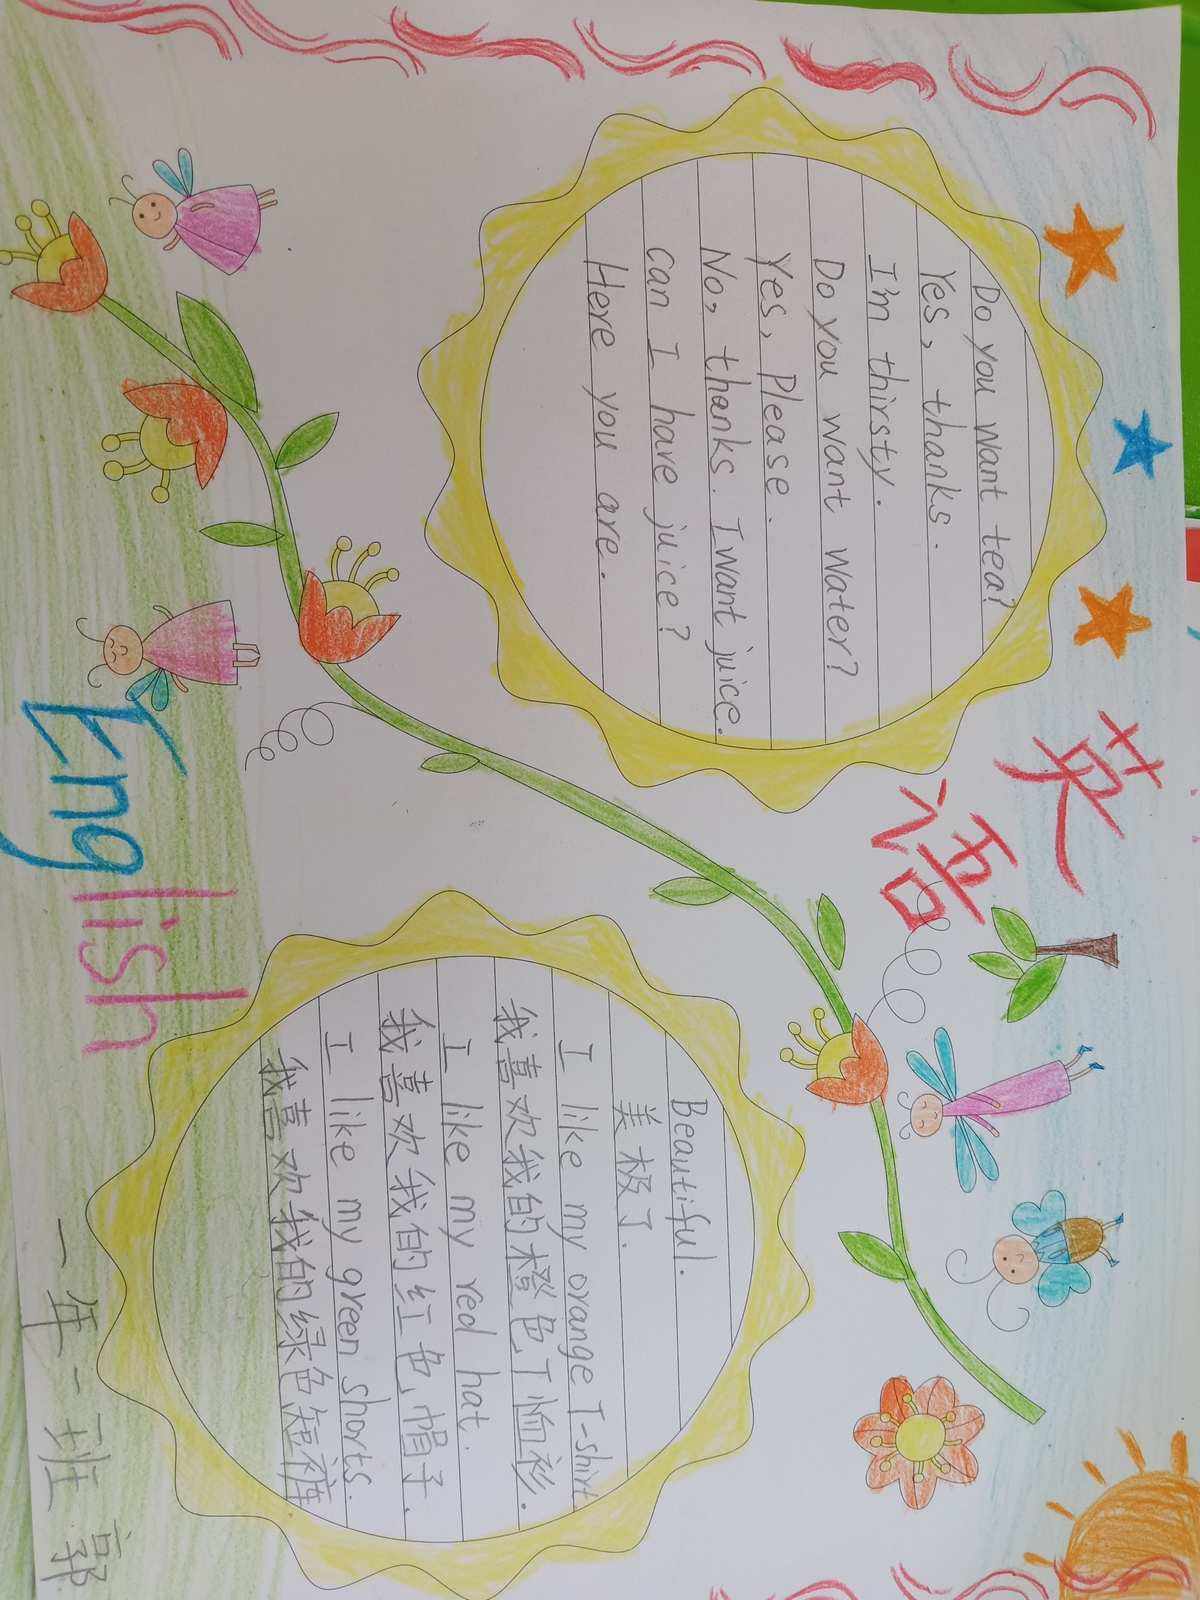 英
语
Do you want tea?
Yes, thanks.
I'm thirsty.
Do you want water?
Yes, Please.
No, thanks. I want juice.
can I have juice?
Here you are.
English
Beautiful.
美极了.
I like my orange T-shirt
我喜欢我的橙色T恤衫.
I like my red hat.
我喜欢我的红色帽子.
I like my green shorts.
我喜欢我的绿色短裤
一年一班 郭